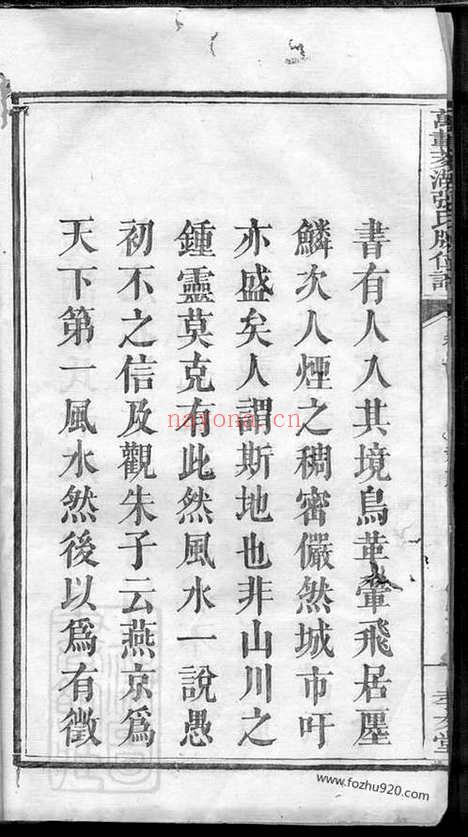 書有人入其境鳥革翬飛居廛
鱗次人煙之稠密儼然城市吁
亦盛矣人謂斯地也非山川之
鍾靈莫克有此然風水一說愚
初不之信及觀朱子云燕京爲
天下第一風水然後以爲有徵
nayona.cn
www.fozhu920.com